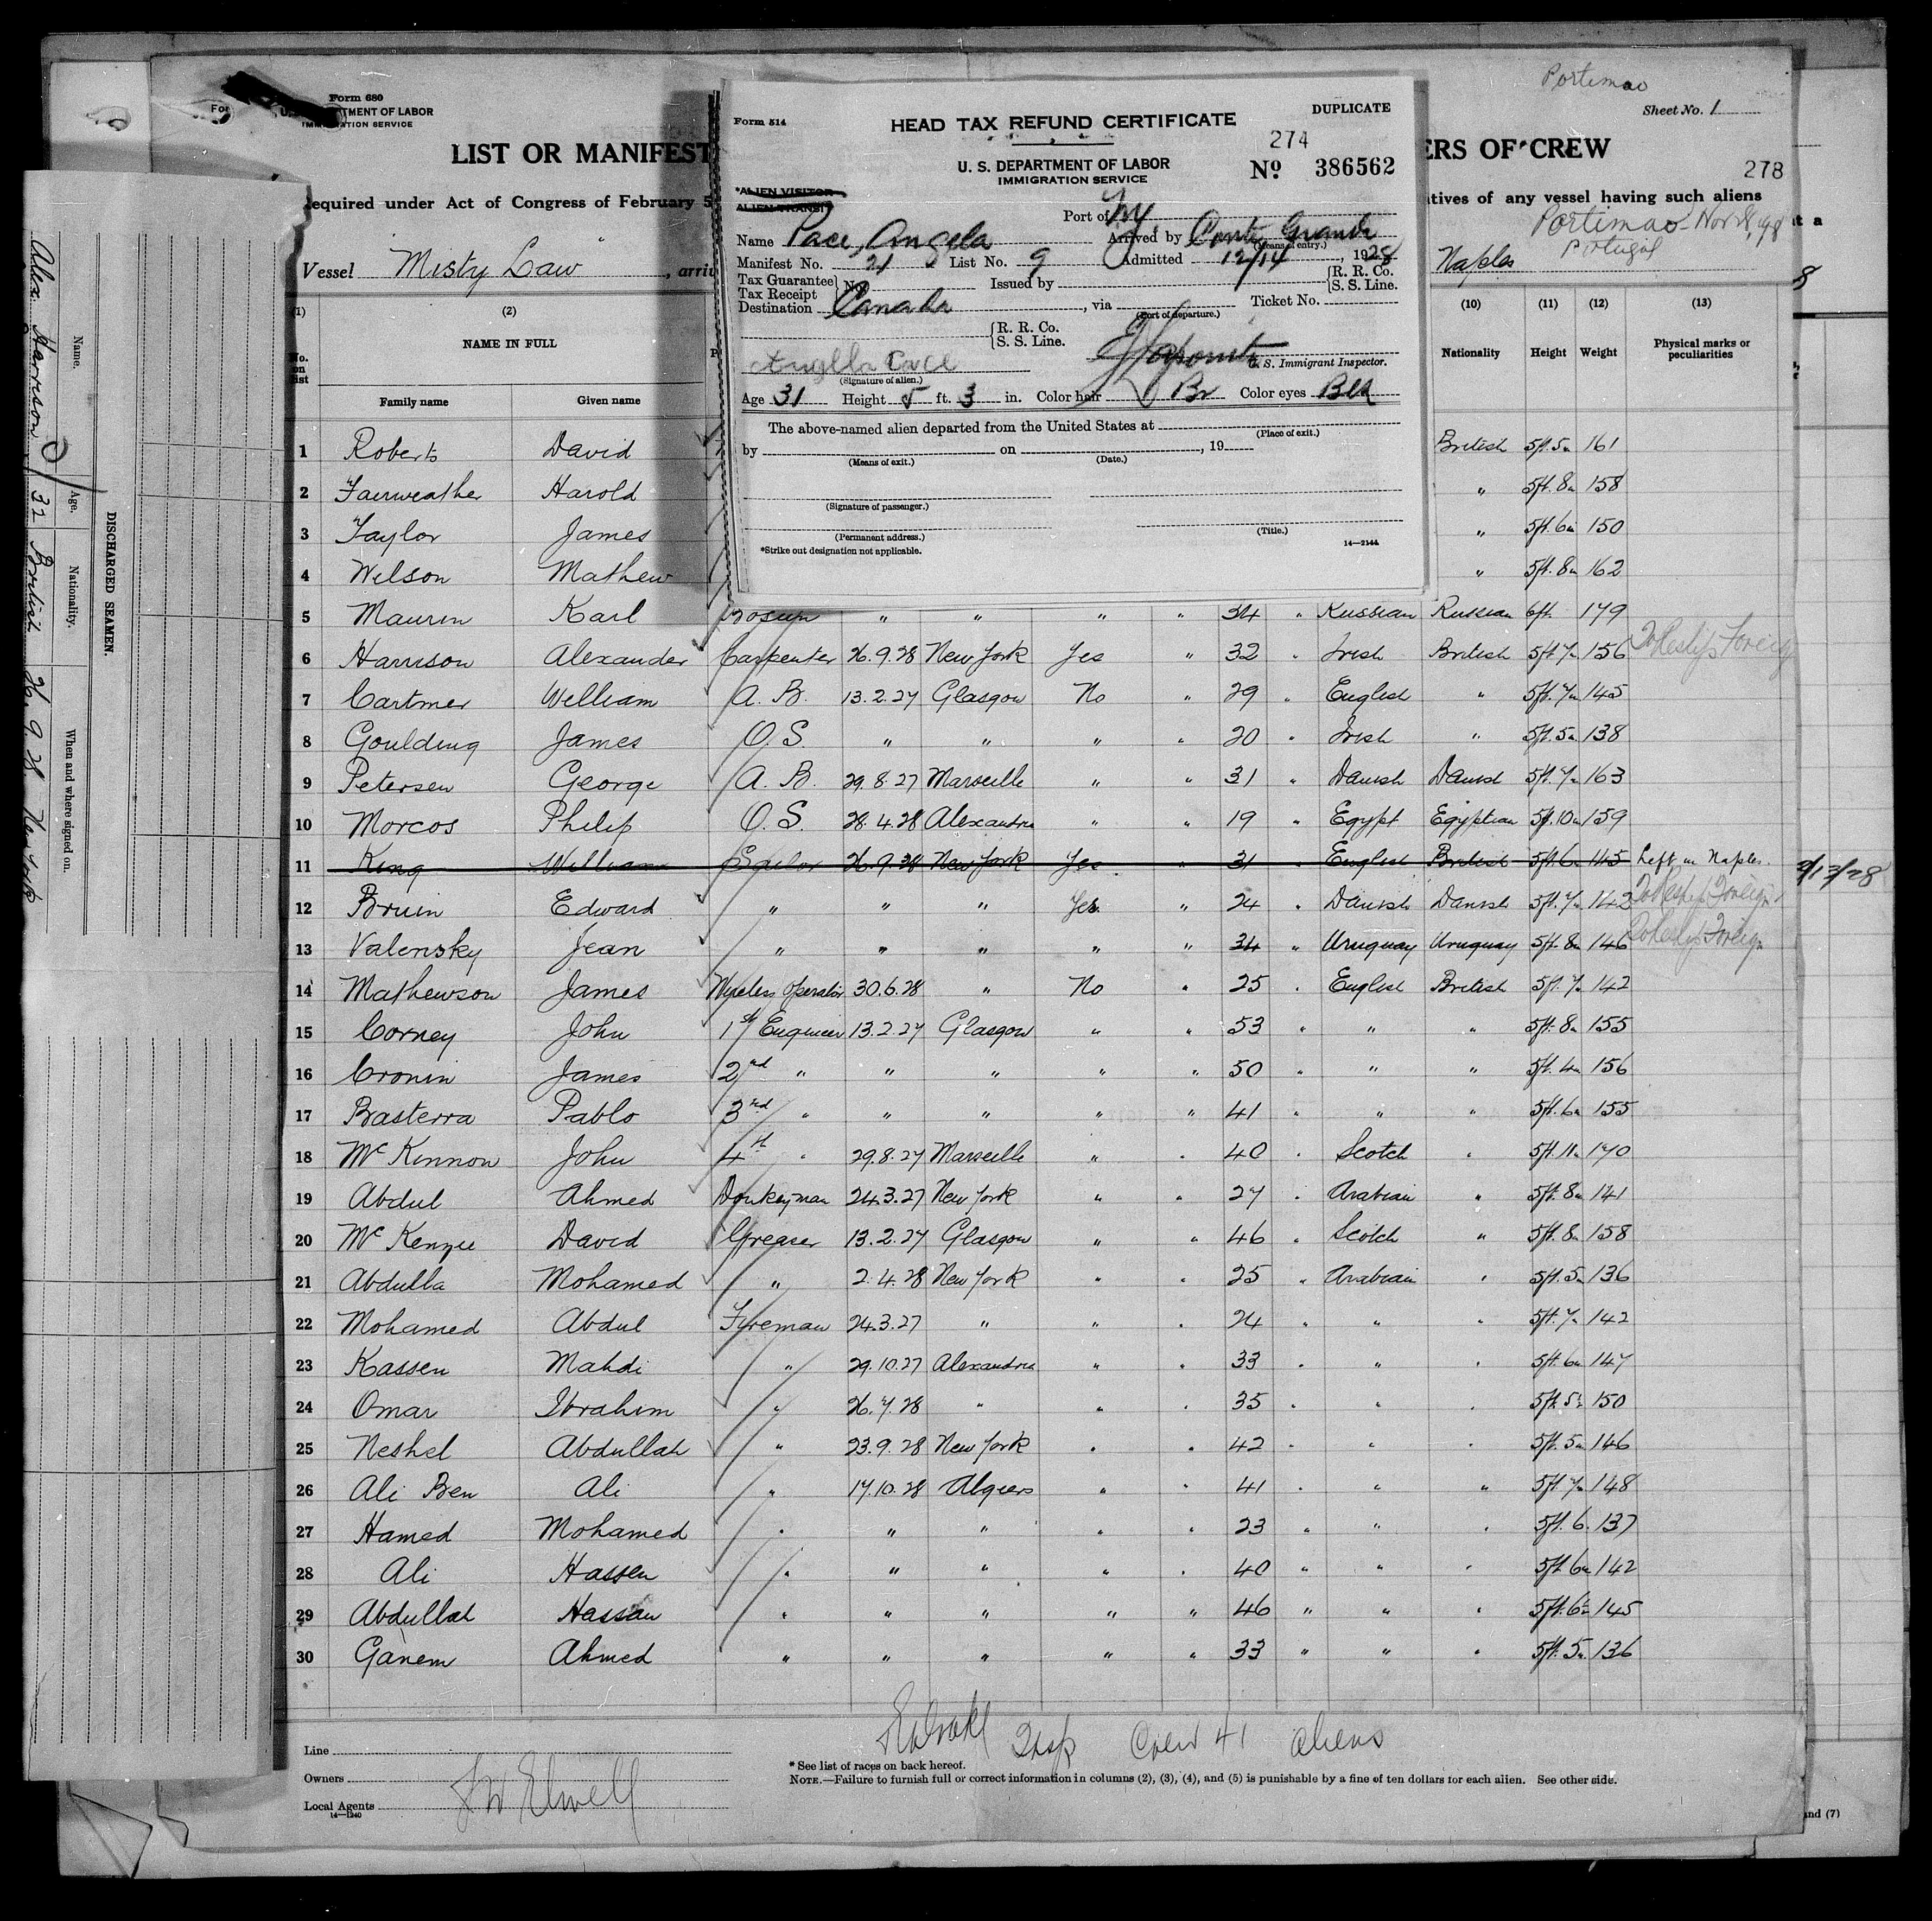 Portimao
Form 680
U. S. DEPARTMENT OF LABOR
IMMIGRATION SERVICE
Sheet No. 1
LIST OR MANIFEST
ERS OF CREW
278
Required under Act of Congress of February 5
tatives of any vessel having such aliens
Portimao Nov 28, 1928
Portugal
Vessel Misty Law , arri
Naples
Form 514
DUPLICATE
HEAD TAX REFUND CERTIFICATE
274
U. S. DEPARTMENT OF LABOR
IMMIGRATION SERVICE
No. 386562
*ALIEN VISITOR
ALIEN TRANSIT
Port of NY
Name Pace, Angela Arrived by Conte Grande
(Means of entry.)
Manifest No. 21 List No. 9 Admitted 12/14, 1928
Tax Guarantee No. Issued by R. R. Co. S. S. Line.
Tax Receipt
Destination Canada, via Ticket No.
(Port of departure.)
R. R. Co.
S. S. Line.
Angella Pace
(Signature of alien.)
U. S. Immigrant Inspector.
Age 31 Height 5 ft. 3 in. Color hair Br Color eyes Blk
The above-named alien departed from the United States at
(Place of exit.)
by on , 19
(Means of exit.) (Date.)
(Signature of passenger.)
(Permanent address.) (Title.)
*Strike out designation not applicable.
14—2144
(1) (2) (10) (11) (12) (13)
No. on list
NAME IN FULL
Nationality Height Weight Physical marks or peculiarities
Family name Given name
1 Roberts David British 5ft.5in 161
2 Fairweather Harold " 5ft.8in 158
3 Taylor James " 5ft.6in 150
4 Wilson Mathew " 5ft.8in 162
5 Maurin Karl Bosun " " " " 34 " Russian Russian 6ft. 179
6 Harrison Alexander Carpenter 26.9.28 New York Yes " 32 " Irish British 5ft.7in 156 To Reship Foreign
7 Cartmer William A. B. 13.2.27 Glasgow No " 29 " English " 5ft.7in 145
8 Goulding James O. S. " " " " 20 " Irish " 5ft.5in 138
9 Petersen George A. B. 29.8.27 Marseille " " 31 " Danish Danish 5ft.7in 163
10 Morcos Philip O. S. 28.4.28 Alexandria " " 19 " Egypt Egyptian 5ft.10in 159
11 King William Sailor 26.9.28 New York Yes " 31 " English British 5ft.6in 145 Left in Naples.
12 Bruin Edward " " " Yes. " 24 " Danish Danish 5ft.7in 142 To Reship Foreign
13 Valensky Jean " " " " " 34 " Uruguay Uruguay 5ft.8in 146 To Reship Foreign
14 Mathewson James Wireless Operator 30.6.28 " No " 25 " English British 5ft.7in 142
15 Corney John 1st Engineer 13.2.27 Glasgow " " 53 " " " 5ft.8in 155
16 Cronin James 2nd " " " " " 50 " " " 5ft.4in 156
17 Basterra Pablo 3rd " " " " " 41 " " " 5ft.6in 155
18 McKinnon John 4th " 29.8.27 Marseille " " 40 " Scotch " 5ft.11in 170
19 Abdul Ahmed Donkeyman 24.3.27 New York " " 27 " Arabian " 5ft.8in 141
20 McKenzie David Greaser 13.2.27 Glasgow " " 46 " Scotch " 5ft.8in 158
21 Abdulla Mohamed " 2.4.28 New York " " 25 " Arabian " 5ft.5in 136
22 Mohamed Abdul Fireman 24.3.27 " " " 24 " " " 5ft.7in 142
23 Kassen Mahdi " 29.10.27 Alexandria " " 33 " " " 5ft.6in 147
24 Omar Ibrahim " 26.7.28 " " " 35 " " " 5ft.5½ 150
25 Neshel Abdullah " 23.9.28 New York " " 42 " " " 5ft.5in 146
26 Ali Ben Ali " 17.10.28 Algiers " " 41 " " " 5ft.7in 148
27 Hamed Mohamed " " " " " 23 " " " 5ft.6. 137
28 Ali Hassen " " " " " 40 " " " 5ft.6in 142
29 Abdullah Hassan " " " " " 46 " " " 5ft.6½ 145
30 Ganem Ahmed " " " " " 33 " " " 5ft.5in 136
Insp Crew 41 aliens
Line
* See list of races on back hereof.
Owners
NOTE.—Failure to furnish full or correct information in columns (2), (3), (4), and (5) is punishable by a fine of ten dollars for each alien. See other side.
Local Agents
J W Elwell
14—1240
and (7)
DISCHARGED SEAMEN.
Name. Age. Nationality. When and where signed on.
Alex. Harrison 32 British 26. 9. 28. New York